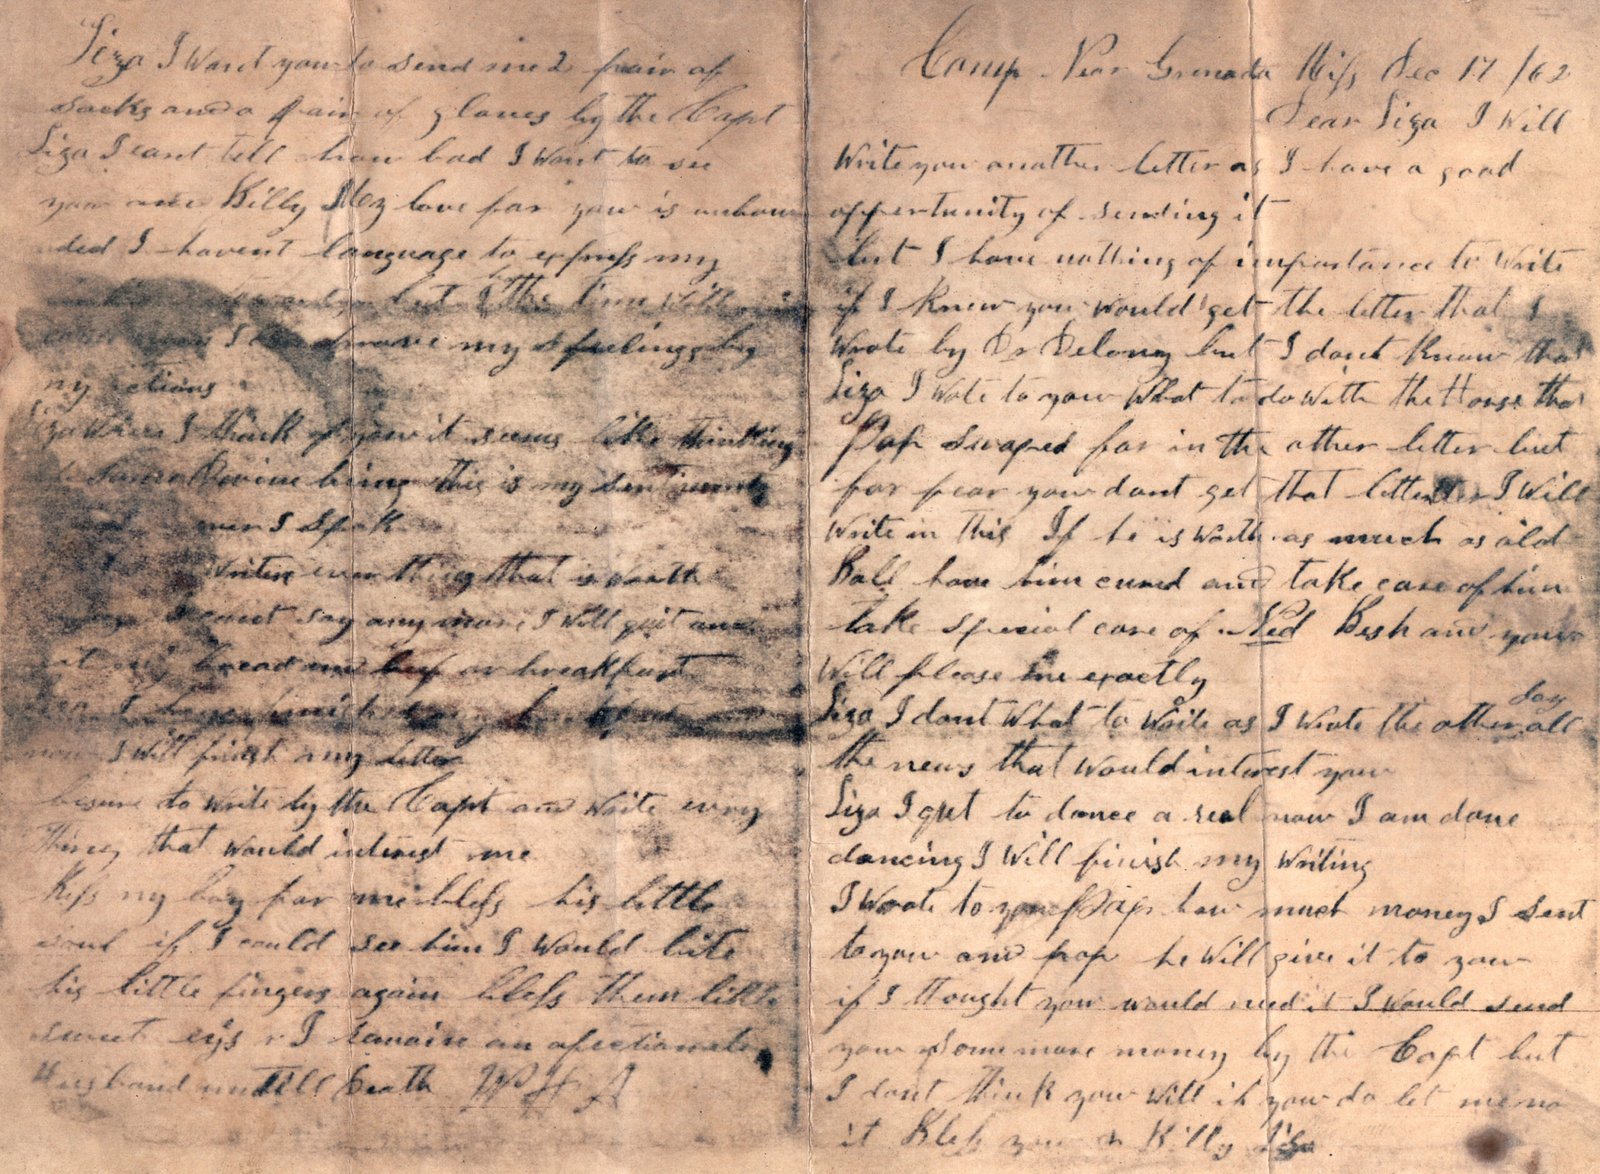 Camp Near Grenada Miss Dec 17 /62
Dear Liza I Will
Write you another letter as I have a good
oppertunity of sending it
but I have nothing of importance to Write
if I knew you would get the letter that I
Wrote by Dr Delony but I dont Know that
Liza I Wote to you What to do With the Horse that
Pap Swaped for in the other letter but
for fear you dont get that letter I Will
Write in this If he is Worth as much as old
Ball have him cured and take care of him
take special care of Ned Bish and you
Will please me exactly
Liza I dont What to Write as I Wrote the other day all
the news that Would interest you
Liza I got to dance a reel now I am done
dancing I Will finish my Writing
I Wrote to you Pap how much money I sent
to you and pap he Will give it to you
if I thought you would need it I Would send
you some more money by the Capt but
I dont think you Will if you do let me no
it Bless you & Billy Liza
Liza I Want you to send me 2 pair of
socks and a pair of gloves by the Capt
Liza I cant tell how bad I Want to see
you and Billy My love for you is unboun
ded I havent language to express my
but the time Will
I can prove my feelings by
my actions
Liza When I think of you it seems like thinking
some Devine being this is my sentiments
ever I Speak
Writen every thing that is Worth
I cant say any more I Will quit and
eat my bread and beef or breakfast
Liza I have finished my breakfast and
now I Will finish my letter
besure to Write by the Capt and Write every
thing that Would interest me
Kiss my boy for me bless his little
soul if I could see him I Would bite
his little fingers again bless them little
sweet eys I remain an afectionate
Husband untill Death W H A